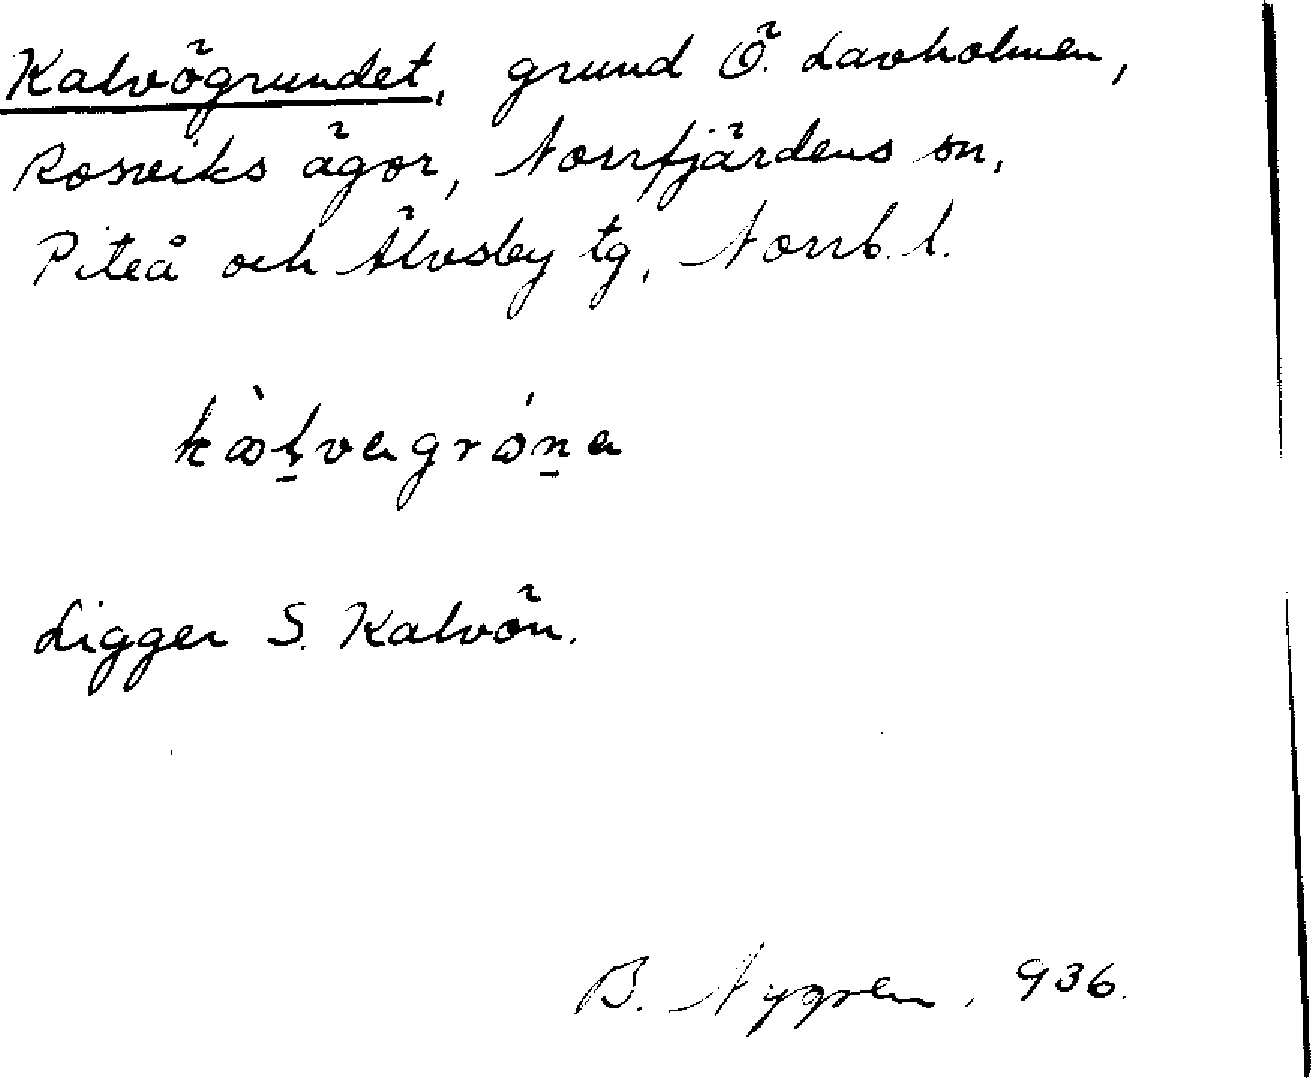 Kalvögrundet, grund Ö. Lavholmen,
Rosviks ägor, Norrfjärdens sn,
Piteå och Älvsby tg, Norrb. l.
Ligger S. Kalvön.
B. Nygren, 936.